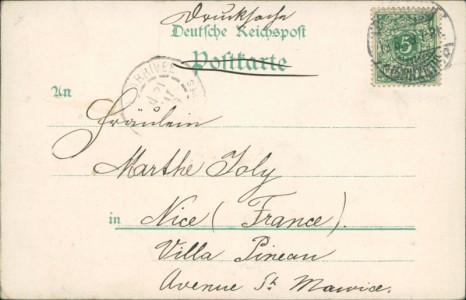 Drucksache
Deutsche Reichspost
Postkarte
5
An
Fräulein
Marthe Joly
in Nice (France).
Villa Pineau
Avenue St Mawice.